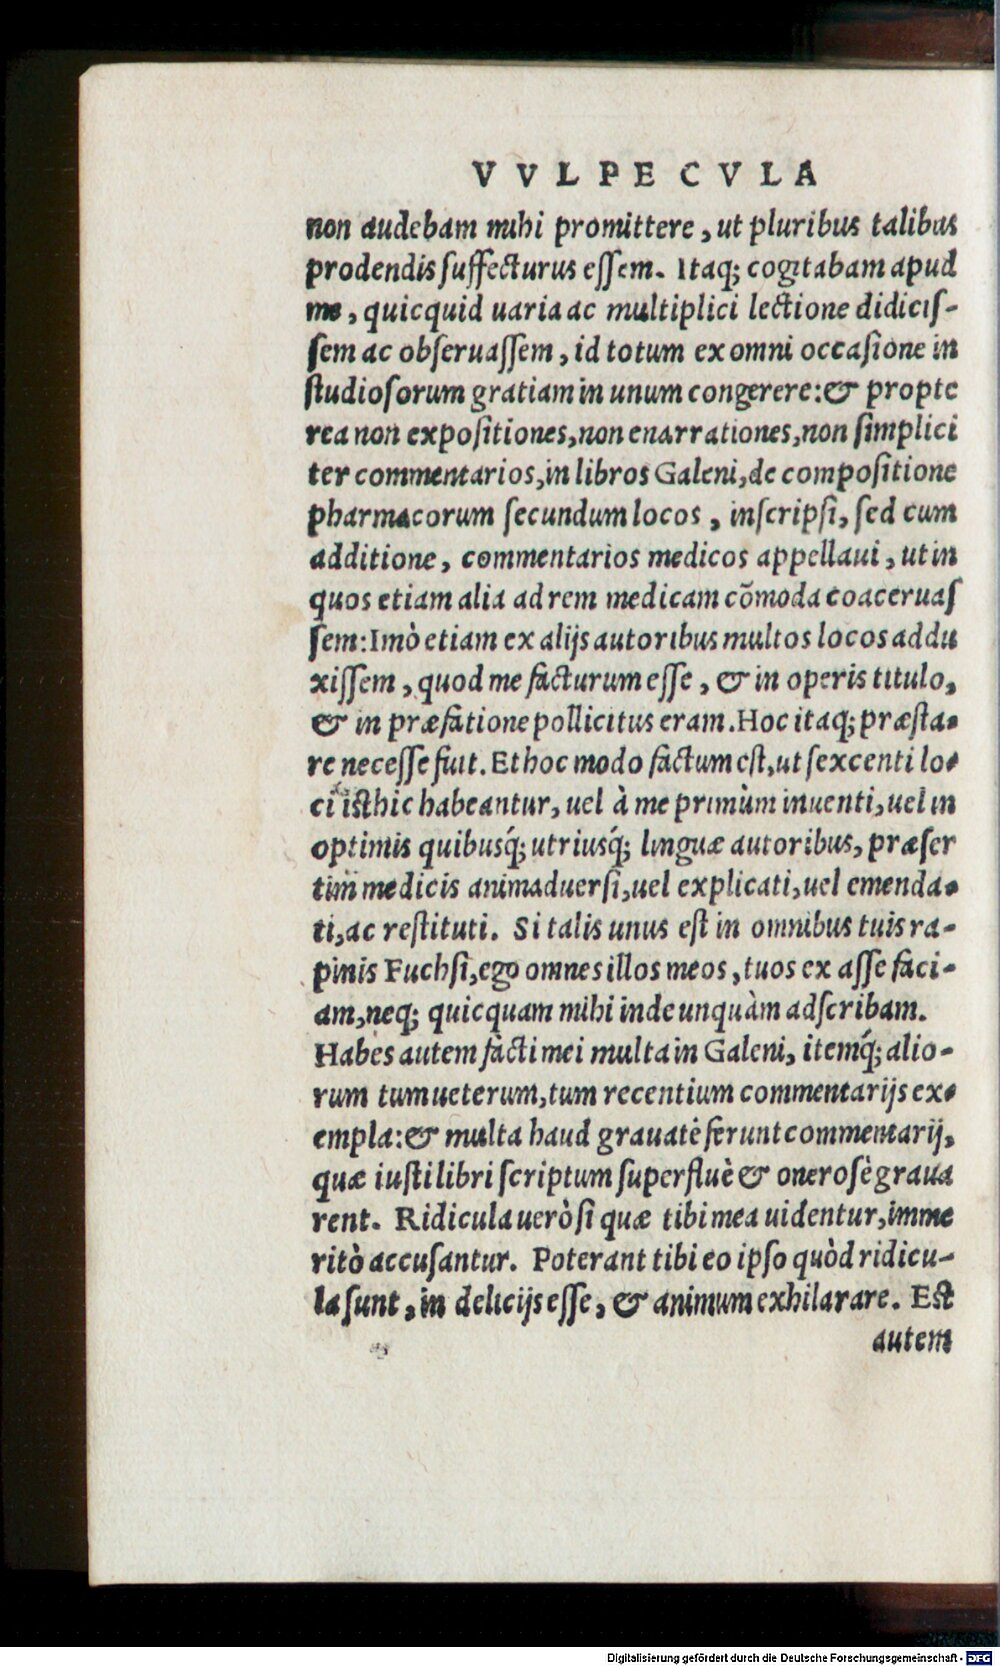 VVLPECVLA
non audebam mihi promittere, ut pluribus talibus
prodendis ſuffecturus eſſem. Itaq; cogitabam apud
me, quicquid uaria ac multiplici lectione didiciſ-
ſem ac obſeruaſſem, id totum ex omni occaſione in
ſtudioſorum gratiam in unum congerere: & propte
rea non expoſitiones, non enarrationes, non ſimplici
ter commentarios, in libros Galeni, de compoſitione
pharmacorum ſecundum locos, inſcripſi, ſed cum
additione, commentarios medicos appellaui, ut in
quos etiam alia ad rem medicam cõmoda coaceruaſ
ſem: Imò etiam ex alijs autoribus multos locos addu
xiſſem, quod me facturum eſſe, & in operis titulo,
& in præfatione pollicitus eram. Hoc itaq; præſta-
re neceſſe fuit. Et hoc modo factum eſt, ut ſexcenti lo-
ci iſthic habeantur, uel à me primùm inuenti, uel in
optimis quibusq́; utriusq́; linguæ autoribus, præſer
tim medicis animaduerſi, uel explicati, uel emenda-
ti, ac reſtituti. Si talis unus eſt in omnibus tuis ra-
pinis Fuchſi, ego omnes illos meos, tuos ex aſſe faci-
am, neq; quicquam mihi inde unquàm adſcribam.
Habes autem facti mei multa in Galeni, itemq́; alio-
rum tum ueterum, tum recentium commentarijs ex-
empla: & multa haud grauatè ferunt commentarij,
quæ iuſti libri ſcriptum ſuperfluè & oneroſè graua
rent. Ridicula uerò ſi quæ tibi mea uidentur, imme
ritò accuſantur. Poterant tibi eo ipſo quòd ridicu-
la ſunt, in delicijs eſſe, & animum exhilarare. Eſt
autem
Digitalisierung gefördert durch die Deutsche Forschungsgemeinschaft - DFG